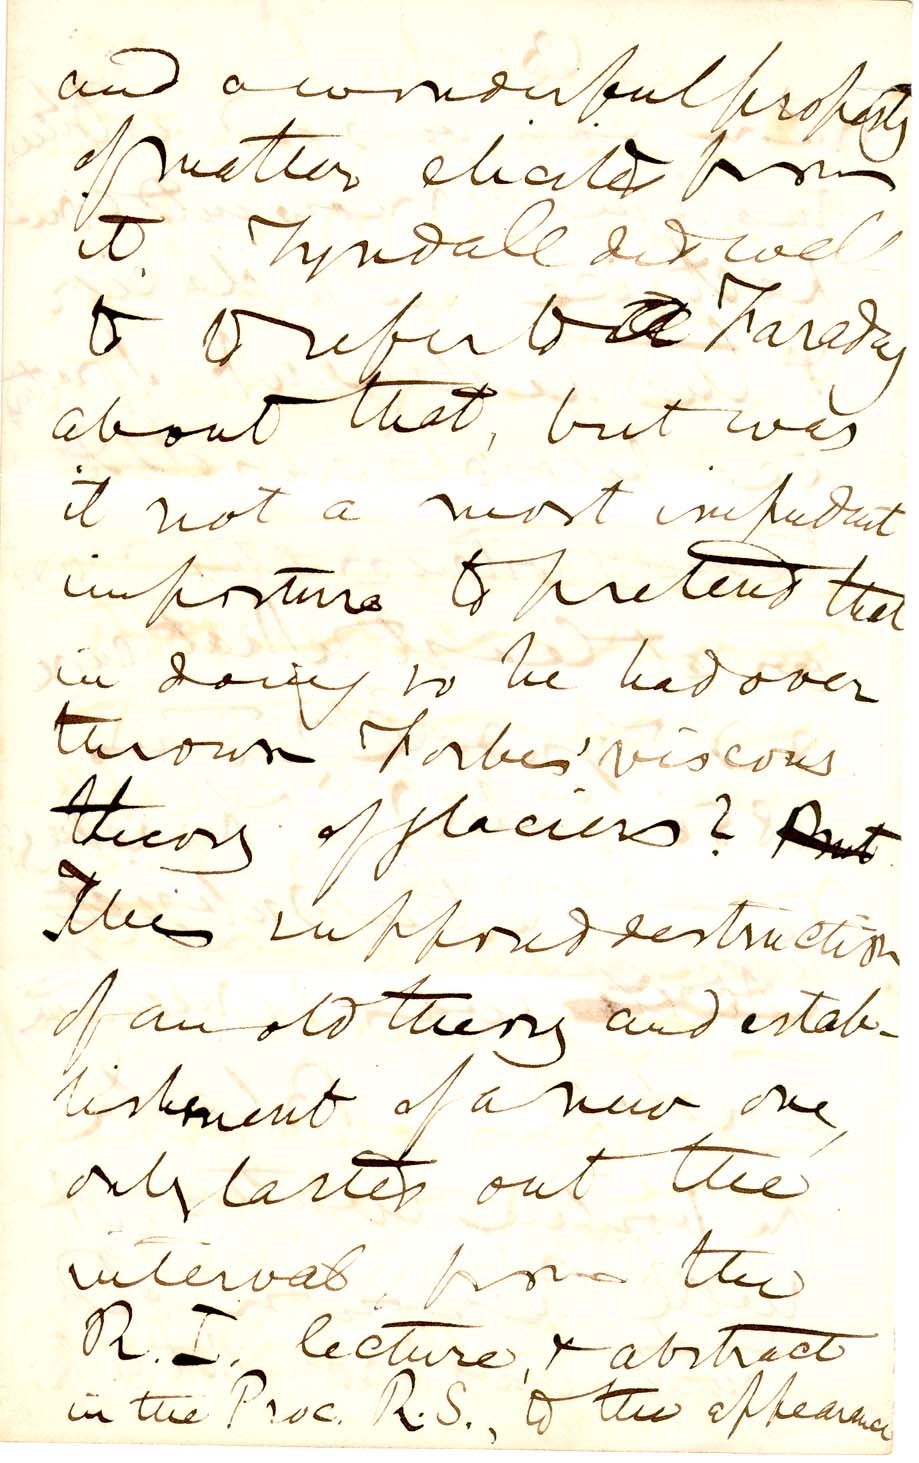 and a wonderful property
of matter elicited from
it. Tyndall did well
to to refer to Faraday
about that, but was
it not a most impudent
imposture to pretend that
in doing so he had over
thrown Forbes' viscous
theory of glaciers? But
This supposed destruction
of an old theory and estab-
lishment of a new one,
only lasted out the
interval, from the
R.I. lecture, & abstract
in the Proc. R.S., to the appearance